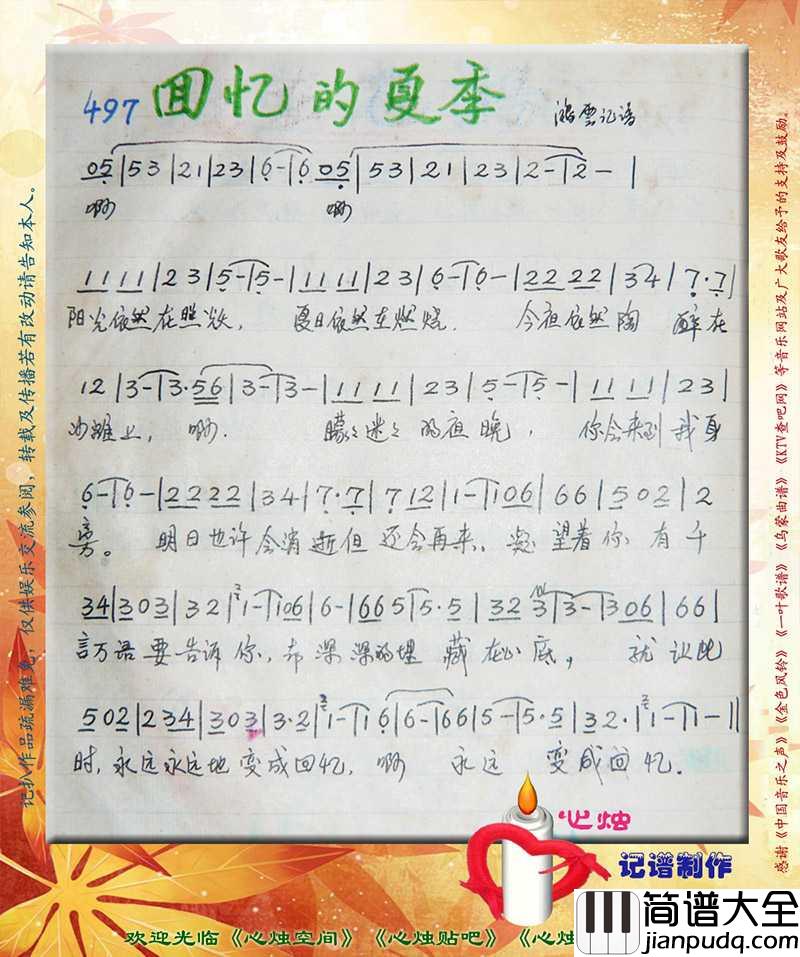 497 回忆的夏季 澔云记谱
05|53|21|23|6-|6 05|53|21|23|2-|2-|
啊 啊
1111|23|5-|5-|1111|23|6-|6-|2222|34|7·7|
阳光依然在照耀, 夏日依然在燃烧. 今夜依然陶 醉在
12|3-|3·56|3-|3-|1111|23|5-|5-|1111|23|
沙滩上, 啊. 朦々迷々的夜晚, 你会来到我身
6-|6-|2222|34|7·7|712|1-|106|66|502|2
旁。 明日也许会消逝但还会再来、凝望着你 有千
34|303|32|1-|106|6-|665|5·5|32 3|3-|306|66|
言万语要告诉你, 却深深的埋藏在心底, 就让此
502|234|303|3·2|1-|1 6|6-|66|5-|5·5|32·|1-|1-||
时, 永远永远地变成回忆, 啊 永远 变成回忆.
记扒作品疏漏难免，仅供娱乐交流参阅，转载及传播若有改动请告知本人。
感谢《中国音乐之声》《金色风铃》《一叶歌谱》《乌蒙曲谱》《KTV查吧网》等音乐网站及广大歌友给予的支持及鼓励。
心烛
记谱制作
欢迎光临《心烛空间》《心烛贴吧》《心烛
简谱大全
jianpudq.com